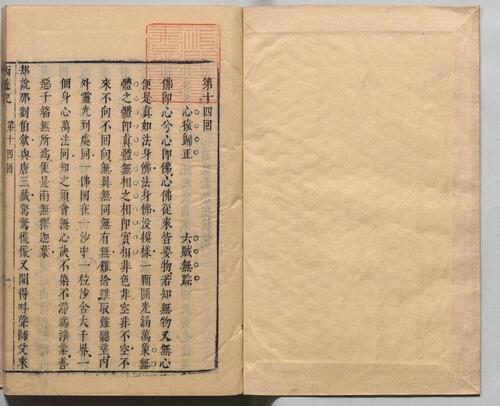 第十四回
心猿歸正　六賊無踪
佛即心兮心即佛心佛從來皆要物若知無物又無心
便是真如法身佛法身佛沒模樣一顆圓光涵萬象無
體之體即真體無相之相即實相非色非空非不空不
來不向不回向無異無同無有無難捨難取難聽望內
外靈光到處同一佛國在一沙中一粒沙含大千界一
個身心萬法同知之須會無心訣不染不滯為淨業善
惡千端無所為便是南無釋迦葉
却說那劉伯欽與唐三藏驚驚慌慌又聞得叫聲師父來
西遊記　第十四回